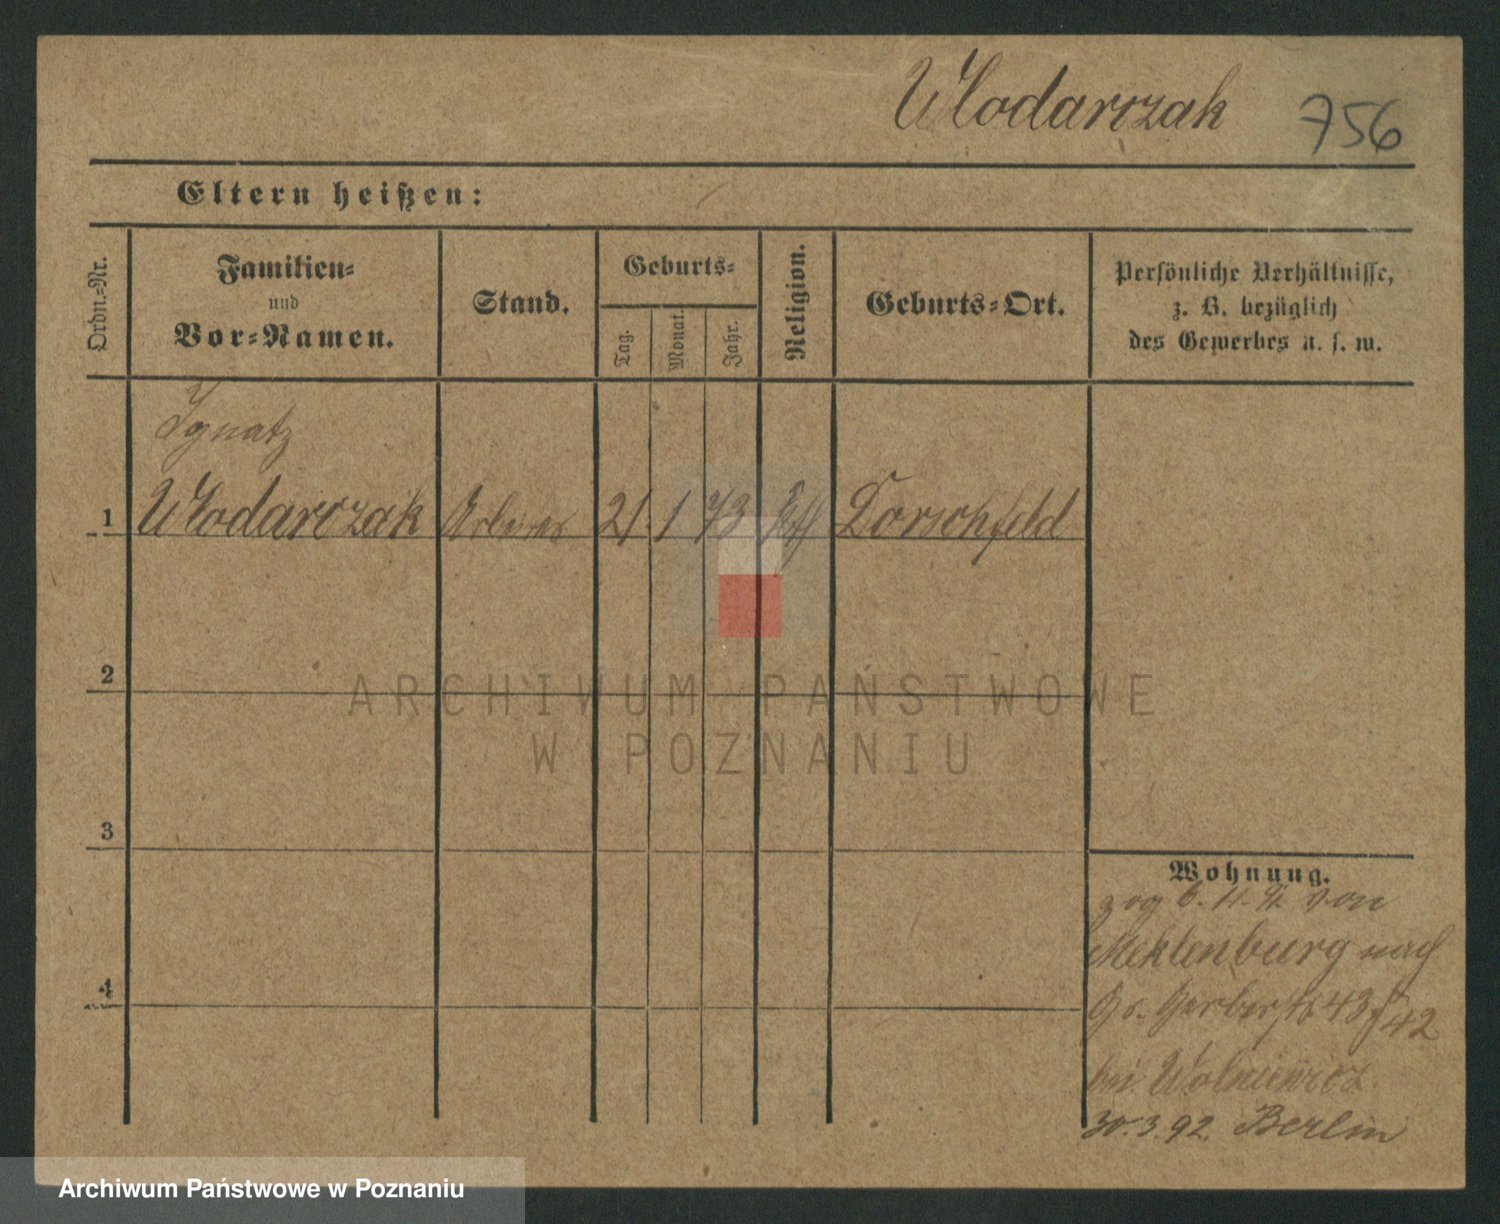 Wlodarczak 756
Eltern heißen:
Ordn.-Nr.
Familien-
und
Vor-Namen.
Stand.
Geburts-
Tag.
Monat.
Jahr.
Religion.
Geburts-Ort.
Persönliche Verhältnisse,
z. B. bezüglich
des Gewerbes u. s. w.
Ignatz
1 Wlodarczak Arbeiter 21. 1 73 Kth
2
3
4
Wohnung.
zog 6. 11. 91 von
Meklenburg nach
Gerberstr 43 42
bei
30.3.92. Berlin
ARCHIWUM PAŃSTWOWE
W POZNANIU
Archiwum Państwowe w Poznaniu